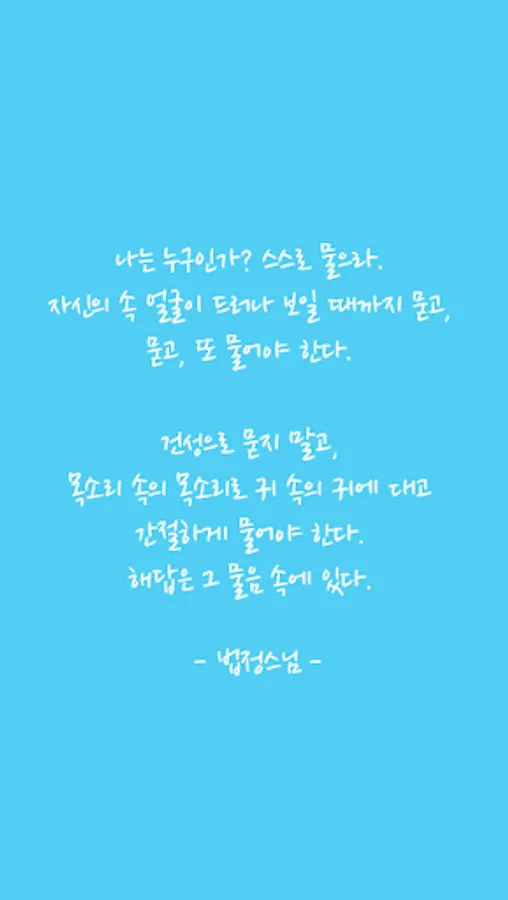 나는 누구인가? 스스로 물으라.
자신의 속 얼굴이 드러나 보일 때까지 묻고,
묻고, 또 물어야 한다.
건성으로 묻지 말고,
목소리 속의 목소리로 귀 속의 귀에 대고
간절하게 물어야 한다.
해답은 그 물음 속에 있다.
- 법정스님 -